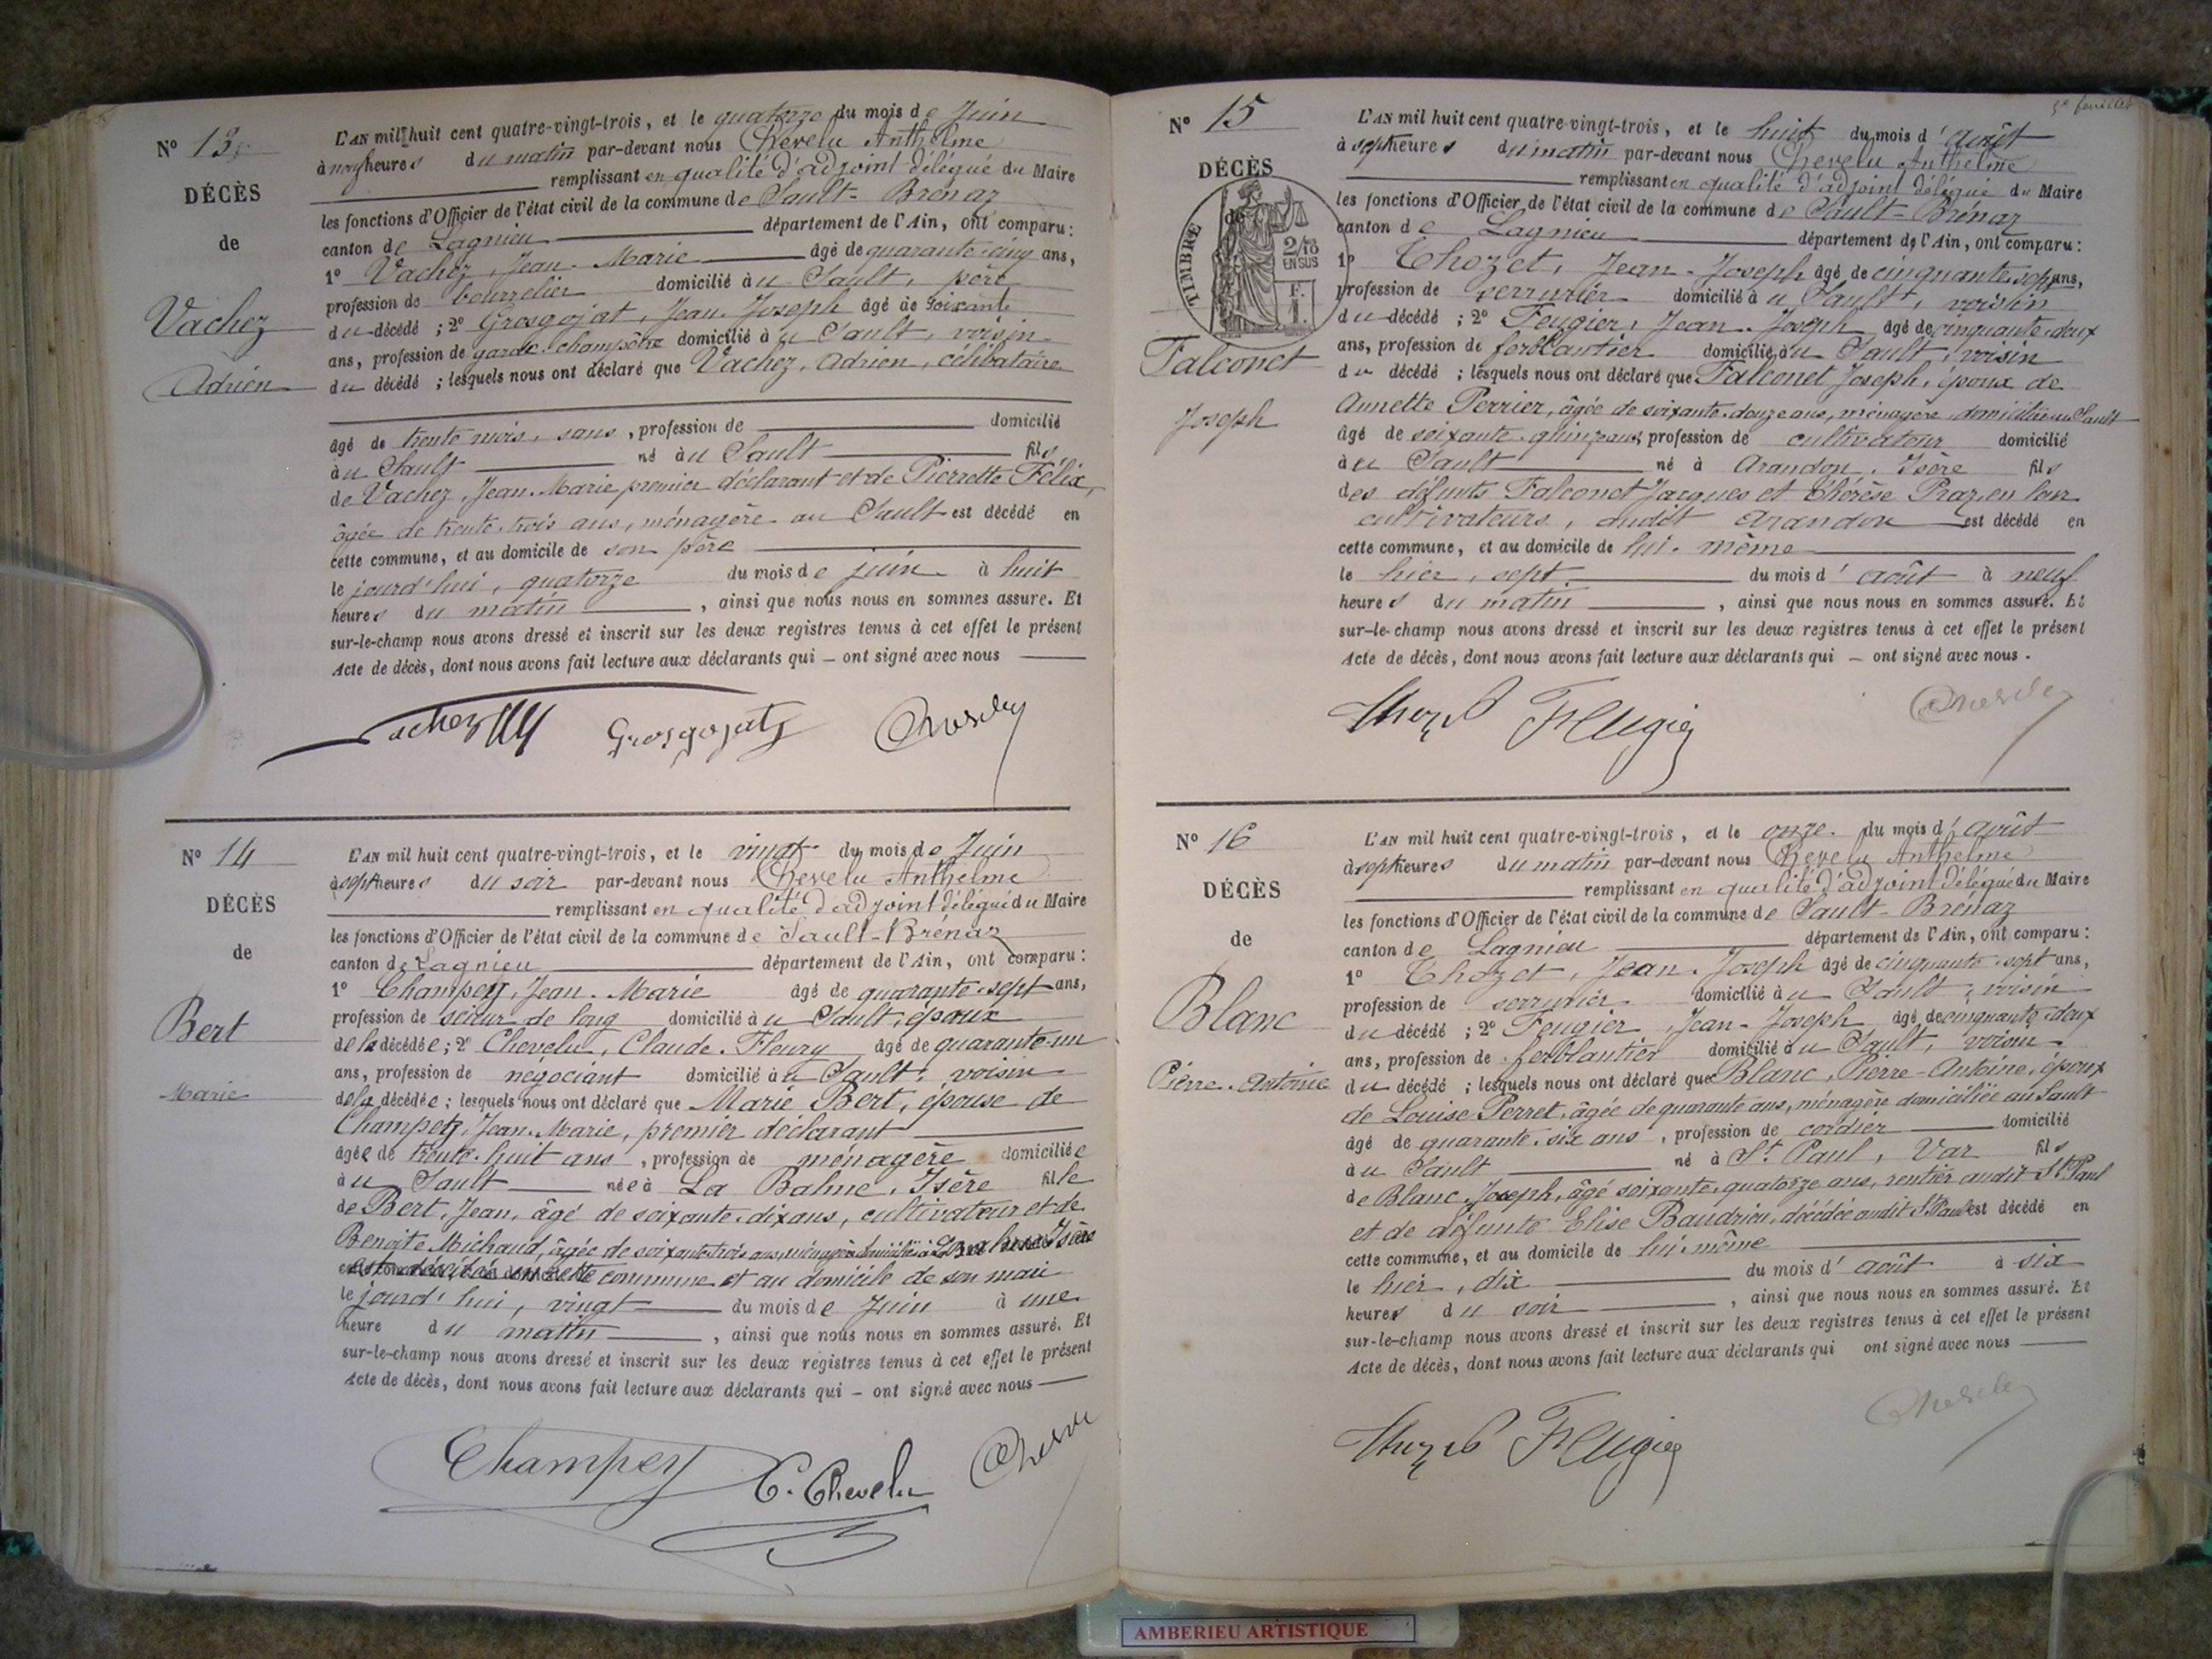 N° 13
DÉCÈS
de
Vachez
Adrien
L'AN mil huit cent quatre-vingt-trois, et le quatorze du mois de Juin
à neuf heures du matin par-devant nous Chevelu Anthelme
remplissant en qualité d'adjoint délégué du Maire
les fonctions d'Officier de l'état civil de la commune de Sault-Brénaz
canton de Lagnieu département de l'Ain, ont comparu :
1° Vachez, Jean-Marie âgé de quarante-cinq ans,
profession de bourrelier domicilié à u Sault, père
du décédé ; 2° Grosgojat, Jean-Joseph âgé de soixante
ans, profession de garde-champêtre domicilié à u Sault, voisin
du décédé ; lesquels nous ont déclaré que Vachez, Adrien, célibataire
âgé de trente mois, sans, profession de domicilié
à u Sault né à u Sault fils
de Vachez, Jean-Marie, premier déclarant et de Pierrette Félix,
âgée de trente-trois ans, ménagère au Sault est décédé en
cette commune, et au domicile de son père
le jourd'hui, quatorze du mois de juin à huit
heures du matin, ainsi que nous nous en sommes assuré. Et
sur-le-champ nous avons dressé et inscrit sur les deux registres tenus à cet effet le présent
Acte de décès, dont nous avons fait lecture aux déclarants qui – ont signé avec nous
Vachez Grosgojat Chevelu
N° 14
DÉCÈS
de
Bert
Marie
L'AN mil huit cent quatre-vingt-trois, et le vingt du mois de Juin
à sept heures du soir par-devant nous Chevelu Anthelme
remplissant en qualité d'adjoint délégué du Maire
les fonctions d'Officier de l'état civil de la commune de Sault-Brénaz
canton de Lagnieu département de l'Ain, ont comparu :
1° Champey, Jean-Marie âgé de quarante-sept ans,
profession de scieur de long domicilié à u Sault, époux
de la décédée ; 2° Chevelu, Claude-Fleury âgé de quarante-un
ans, profession de négociant domicilié à u Sault, voisin
de la décédée ; lesquels nous ont déclaré que Marie Bert, épouse de
Champey, Jean-Marie, premier déclarant
âgée de trente-huit ans, profession de ménagère domiciliée
à u Sault née à La Balme, Isère fille
de Bert, Jean, âgé de soixante-dix ans, cultivateur et de
Benoite Michaud, âgée de soixante-trois ans, ménagère domiciliés à La Balme Isère
est décédée en cette commune et au domicile de son mari
le jourd'hui, vingt du mois de Juin à une
heure du matin, ainsi que nous nous en sommes assuré. Et
sur-le-champ nous avons dressé et inscrit sur les deux registres tenus à cet effet le présent
Acte de décès, dont nous avons fait lecture aux déclarants qui – ont signé avec nous
Champey C. Chevelu Chevelu
5e feuillet
N° 15
DÉCÈS
de
TIMBRE
2/10
EN SUS
F.
1.
Falconet
Joseph
L'AN mil huit cent quatre-vingt-trois, et le huit du mois d'août
à sept heures du matin par-devant nous Chevelu Anthelme
remplissant en qualité d'adjoint délégué du Maire
les fonctions d'Officier de l'état civil de la commune de Sault-Brénaz
canton de Lagnieu département de l'Ain, ont comparu :
1° Thozet, Jean-Joseph âgé de cinquante-sept ans,
profession de serrurier domicilié à u Sault, voisin
du décédé ; 2° Feugier, Jean-Joseph âgé de cinquante-deux
ans, profession de ferblantier domicilié à u Sault, voisin
du décédé ; lesquels nous ont déclaré que Falconet Joseph, époux de
Annette Perrier, âgée de soixante-douze ans, ménagère domiciliée au Sault
âgé de soixante-quinze ans, profession de cultivateur domicilié
à u Sault né à Arandon, Isère fils
des défunts Falconet Jacques et Thérèse Praz, en leur
cultivateurs, audit Arandon est décédé en
cette commune, et au domicile de lui-même
le hier, sept du mois d'août à neuf
heures du matin, ainsi que nous nous en sommes assuré. Et
sur-le-champ nous avons dressé et inscrit sur les deux registres tenus à cet effet le présent
Acte de décès, dont nous avons fait lecture aux déclarants qui – ont signé avec nous.
Thozet Feugier Chevelu
N° 16
DÉCÈS
de
Blanc
Pierre-Antoine
L'AN mil huit cent quatre-vingt-trois, et le onze du mois d'août
à sept heures du matin par-devant nous Chevelu Anthelme
remplissant en qualité d'adjoint délégué du Maire
les fonctions d'Officier de l'état civil de la commune de Sault-Brénaz
canton de Lagnieu département de l'Ain, ont comparu :
1° Thozet, Jean-Joseph âgé de cinquante-sept ans,
profession de serrurier domicilié à u Sault, voisin
du décédé ; 2° Feugier, Jean-Joseph âgé de cinquante-deux
ans, profession de ferblantier domicilié à u Sault, voisin
du décédé ; lesquels nous ont déclaré que Blanc, Pierre-Antoine, époux
de Louise Perret, âgée de quarante ans, ménagère domiciliée au Sault
âgé de quarante-six ans, profession de cordier domicilié
à u Sault né à St Paul, Var fils
de Blanc, Joseph, âgé soixante-quatorze ans, rentier audit St Paul
et de défunte Elise Baudrieu, décédée audit St Paul est décédé en
cette commune, et au domicile de lui-même
le hier, dix du mois d'août à six
heures du soir, ainsi que nous nous en sommes assuré. Et
sur-le-champ nous avons dressé et inscrit sur les deux registres tenus à cet effet le présent
Acte de décès, dont nous avons fait lecture aux déclarants qui ont signé avec nous
Thozet Feugier Chevelu
AMBERIEU ARTISTIQUE